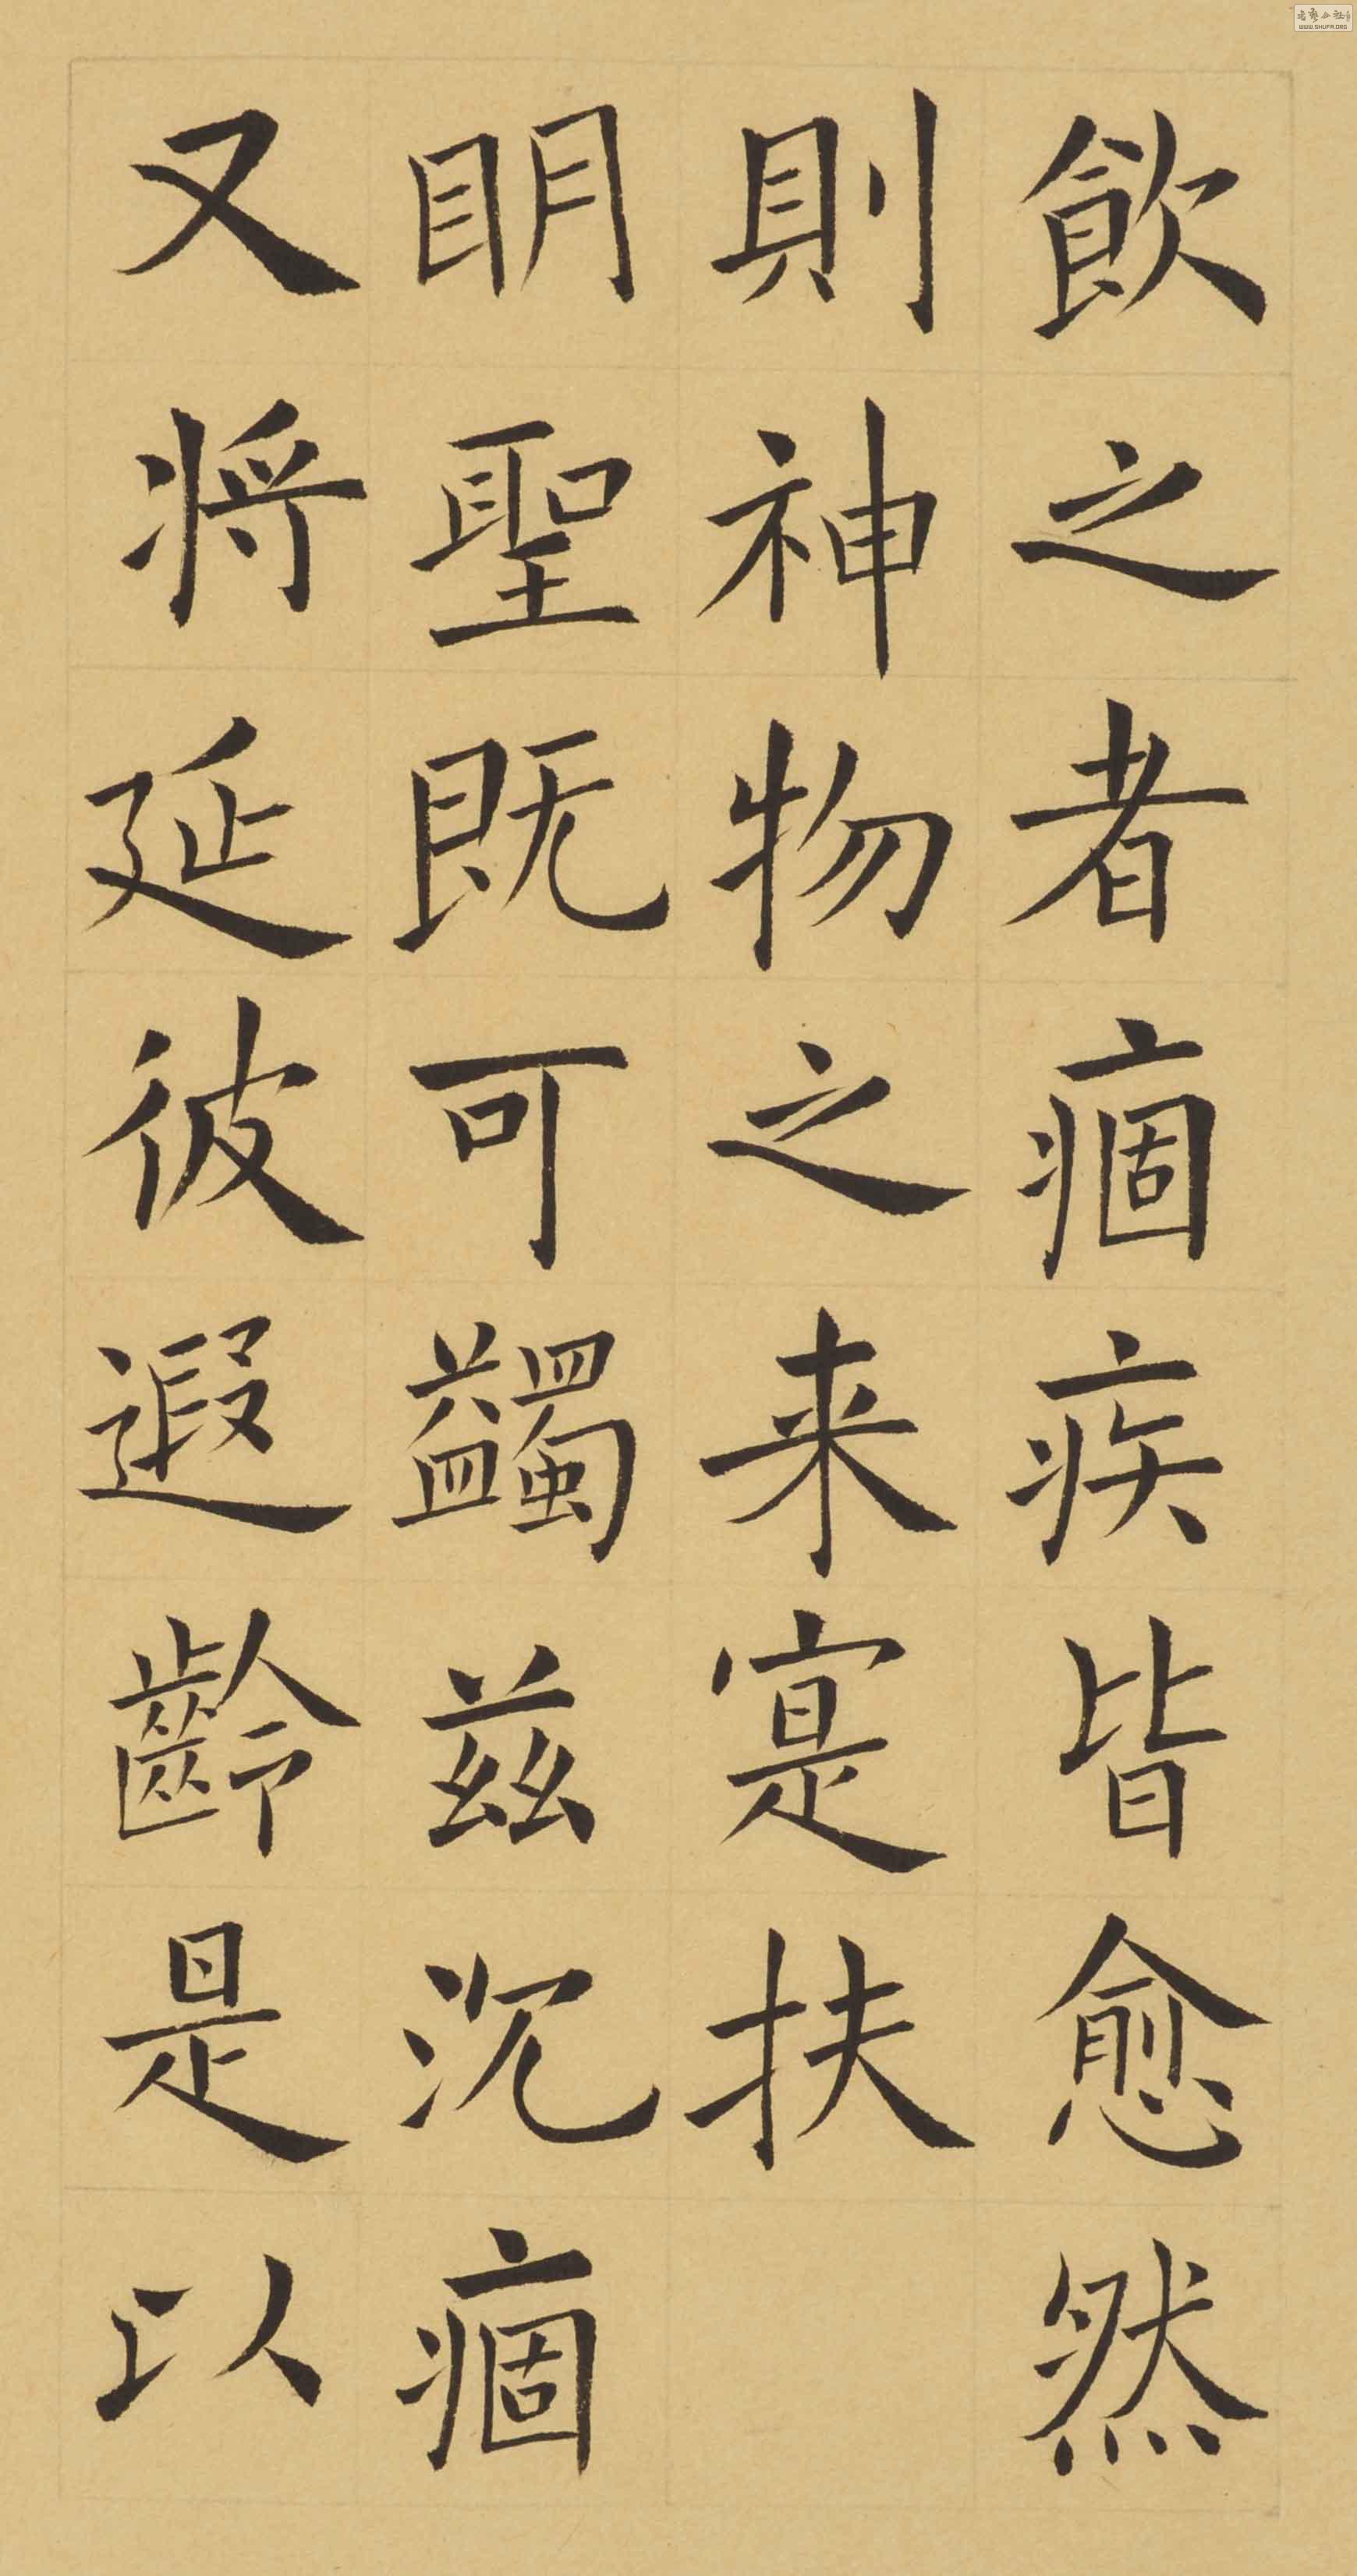 飲之者痼疾皆愈然
則神物之来寔扶
明聖既可蠲兹沉痼
又将延彼遐齡是以
WWW.SHUFA.ORG